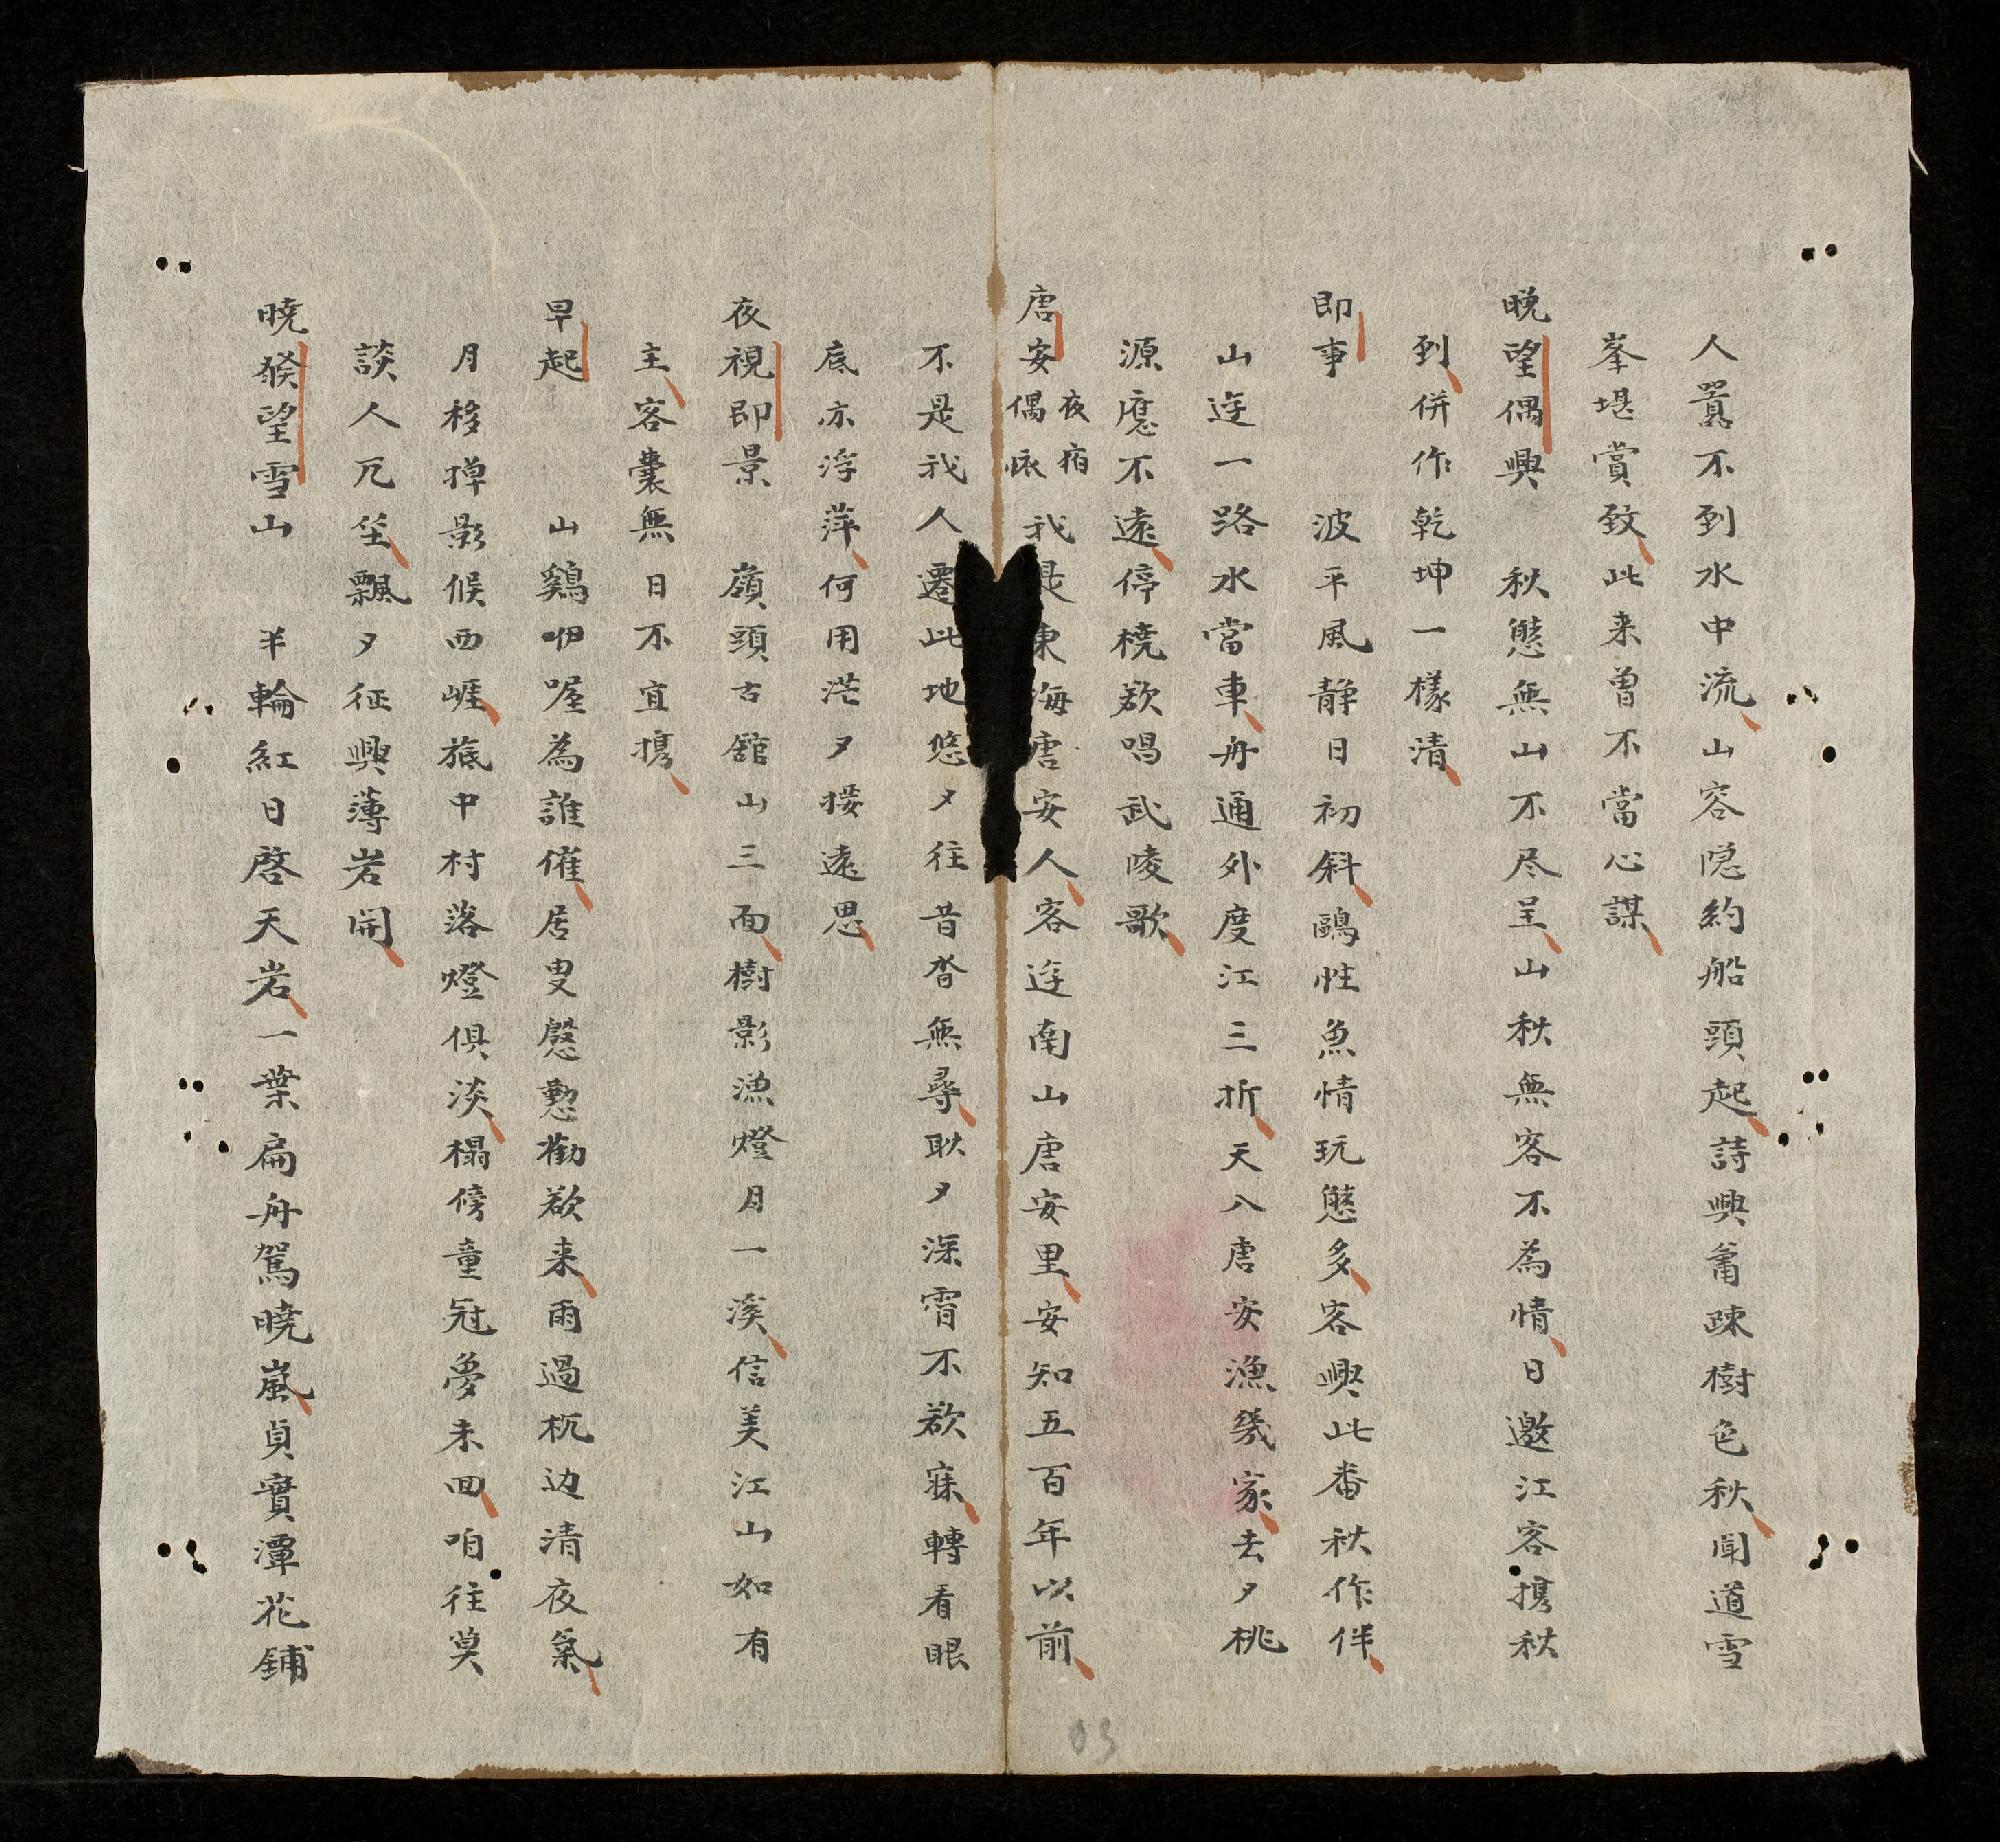 人囂不到水中流山容隠約船頭起詩興蕭疎樹色秋聞道雪
峯堪賞致此来曽不當心謀
晩望偶興 秋態無山不尽呈山秋無客不為情日邀江客携秋
到併作乾坤一様清
即事 波平風静日初斜鷗性魚情玩態多客興此番秋作伴
山迳一路水當車舟通外度江三折天入唐安漁幾家去夕桃
源應不遠停橈欲唱武陵歌
唐安夜宿偶成 我是東海唐安人客迳南山唐安里安知五百年以前
不是我人遷此地悠夕往昔杳無尋耿夕深宵不欲寐轉看眼
底亦浮萍何用茫夕接遠思
夜視即景 嶺頭古舘山三面樹影漁燈月一溪信美江山如有
主客囊無日不宜携
早起 山鷄咿喔為誰催居叟慇懃勸欲来雨過杭边清夜氣
月移掉影候西崕菰中村落燈俱淡榻傍童冠夢未回咱往莫
談人兀坐飄夕征興薄岩開
曉發望雪山 半輪紅日啓天岩一葉扁舟駕曉嵐貞實潭花鋪
03